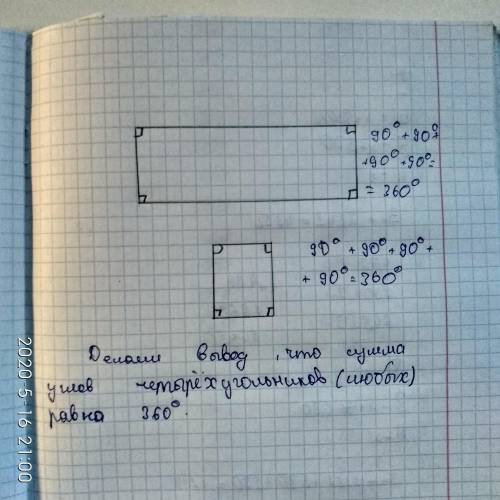 90° + 90° +
+90° +90° =
= 360°
90° + 90° + 90° +
+ 90° = 360°
Делаем вывод, что сумма
углов четырёхугольников (любых)
равна 360°.
2020-5-16 21:00